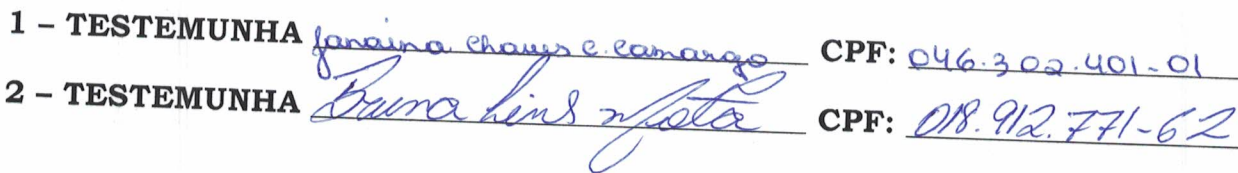 1 – TESTEMUNHA Janaina Chaves C. Camargo CPF: 046.302.401-01
2 – TESTEMUNHA Bruna Lins Mota CPF: 018.912.771-62